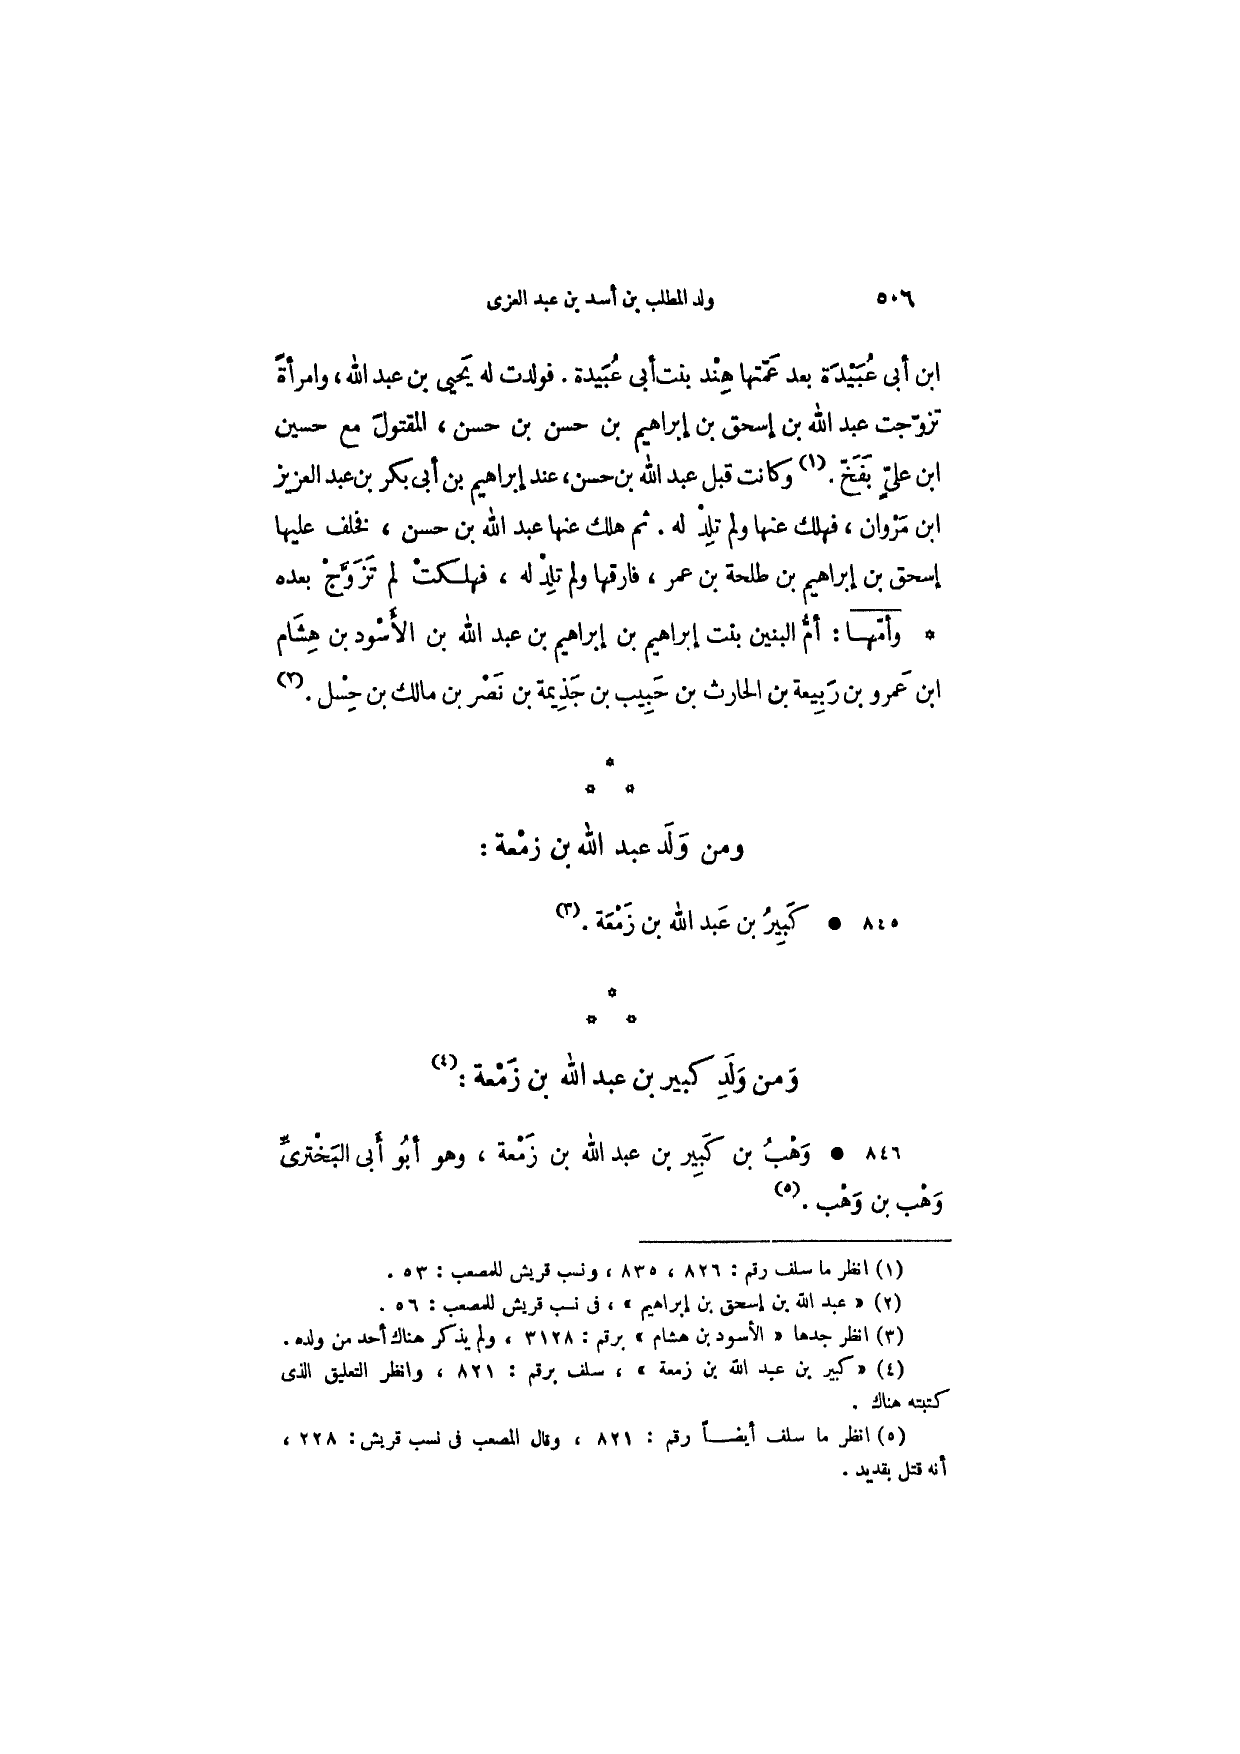 ٥٠٦ ولد المطلب بن أسد بن عبد العزى
ابن أبى عُبَيْدَة بعد عَمّتها هِنْد بنت أبى عُبَيدة . فولدت له يَحيى بن عبد الله ، وامرأةً
تزوّجت عبد الله بن إسحق بن إبراهيم بن حسن بن حسن ، المقتولَ مع حسين
ابن عليٍّ بَفَخّ . (١) وكانت قبل عبد الله بن حسن ، عند إبراهيم بن أبى بكر بن عبد العزيز
ابن مَرْوان ، فهلك عنها ولم تلِدْ له . ثم هلك عنها عبد الله بن حسن ، فخلف عليها
إسحق بن إبراهيم بن طلحة بن عمر ، فارقها ولم تلِدْ له ، فهلكتْ لم تَزَوَّجْ بعده
* وأمّهـا : أمُّ البنين بنت إبراهيم بن إبراهيم بن عبد الله بن الأَسْود بن هِشَام
ابن عَمرو بن رَبِيعة بن الحارث بن حَبِيب بن جَذِيمة بن نَصْر بن مالك بن حِسْل . (٢)
*
* *
ومن وَلَد عبد الله بن زمْعة :
٨٤٥ ● كَبِيرُ بن عَبد الله بن زَمْعَة . (٣)
*
* *
وَمن وَلَدِ كبير بن عبد الله بن زَمْعة : (٤)
٨٤٦ ● وَهْبُ بن كَبِير بن عبد الله بن زَمْعة ، وهو أبُو أَبى البَخْترىٌّ
وَهْب بن وَهْب . (٥)
(١) انظر ما سلف رقم : ٨٢٦ ، ٨٣٥ ، ونسب قريش للمصعب : ٥٣ .
(٢) « عبد الله بن إسحق بن إبراهيم » ، فى نسب قريش للمصعب : ٥٦ .
(٣) انظر جدها « الأسود بن هشام » برقم : ٣١٢٨ ، ولم يذكر هناك أحد من ولده .
(٤) « كبير بن عبد الله بن زمعة » ، سلف برقم : ٨٢١ ، وانظر التعليق الذى
كتبته هناك .
(٥) انظر ما سلف أيضـــاً رقم : ٨٢١ ، وقال المصعب فى نسب قريش : ٢٢٨ ،
أنه قتل بقديد .